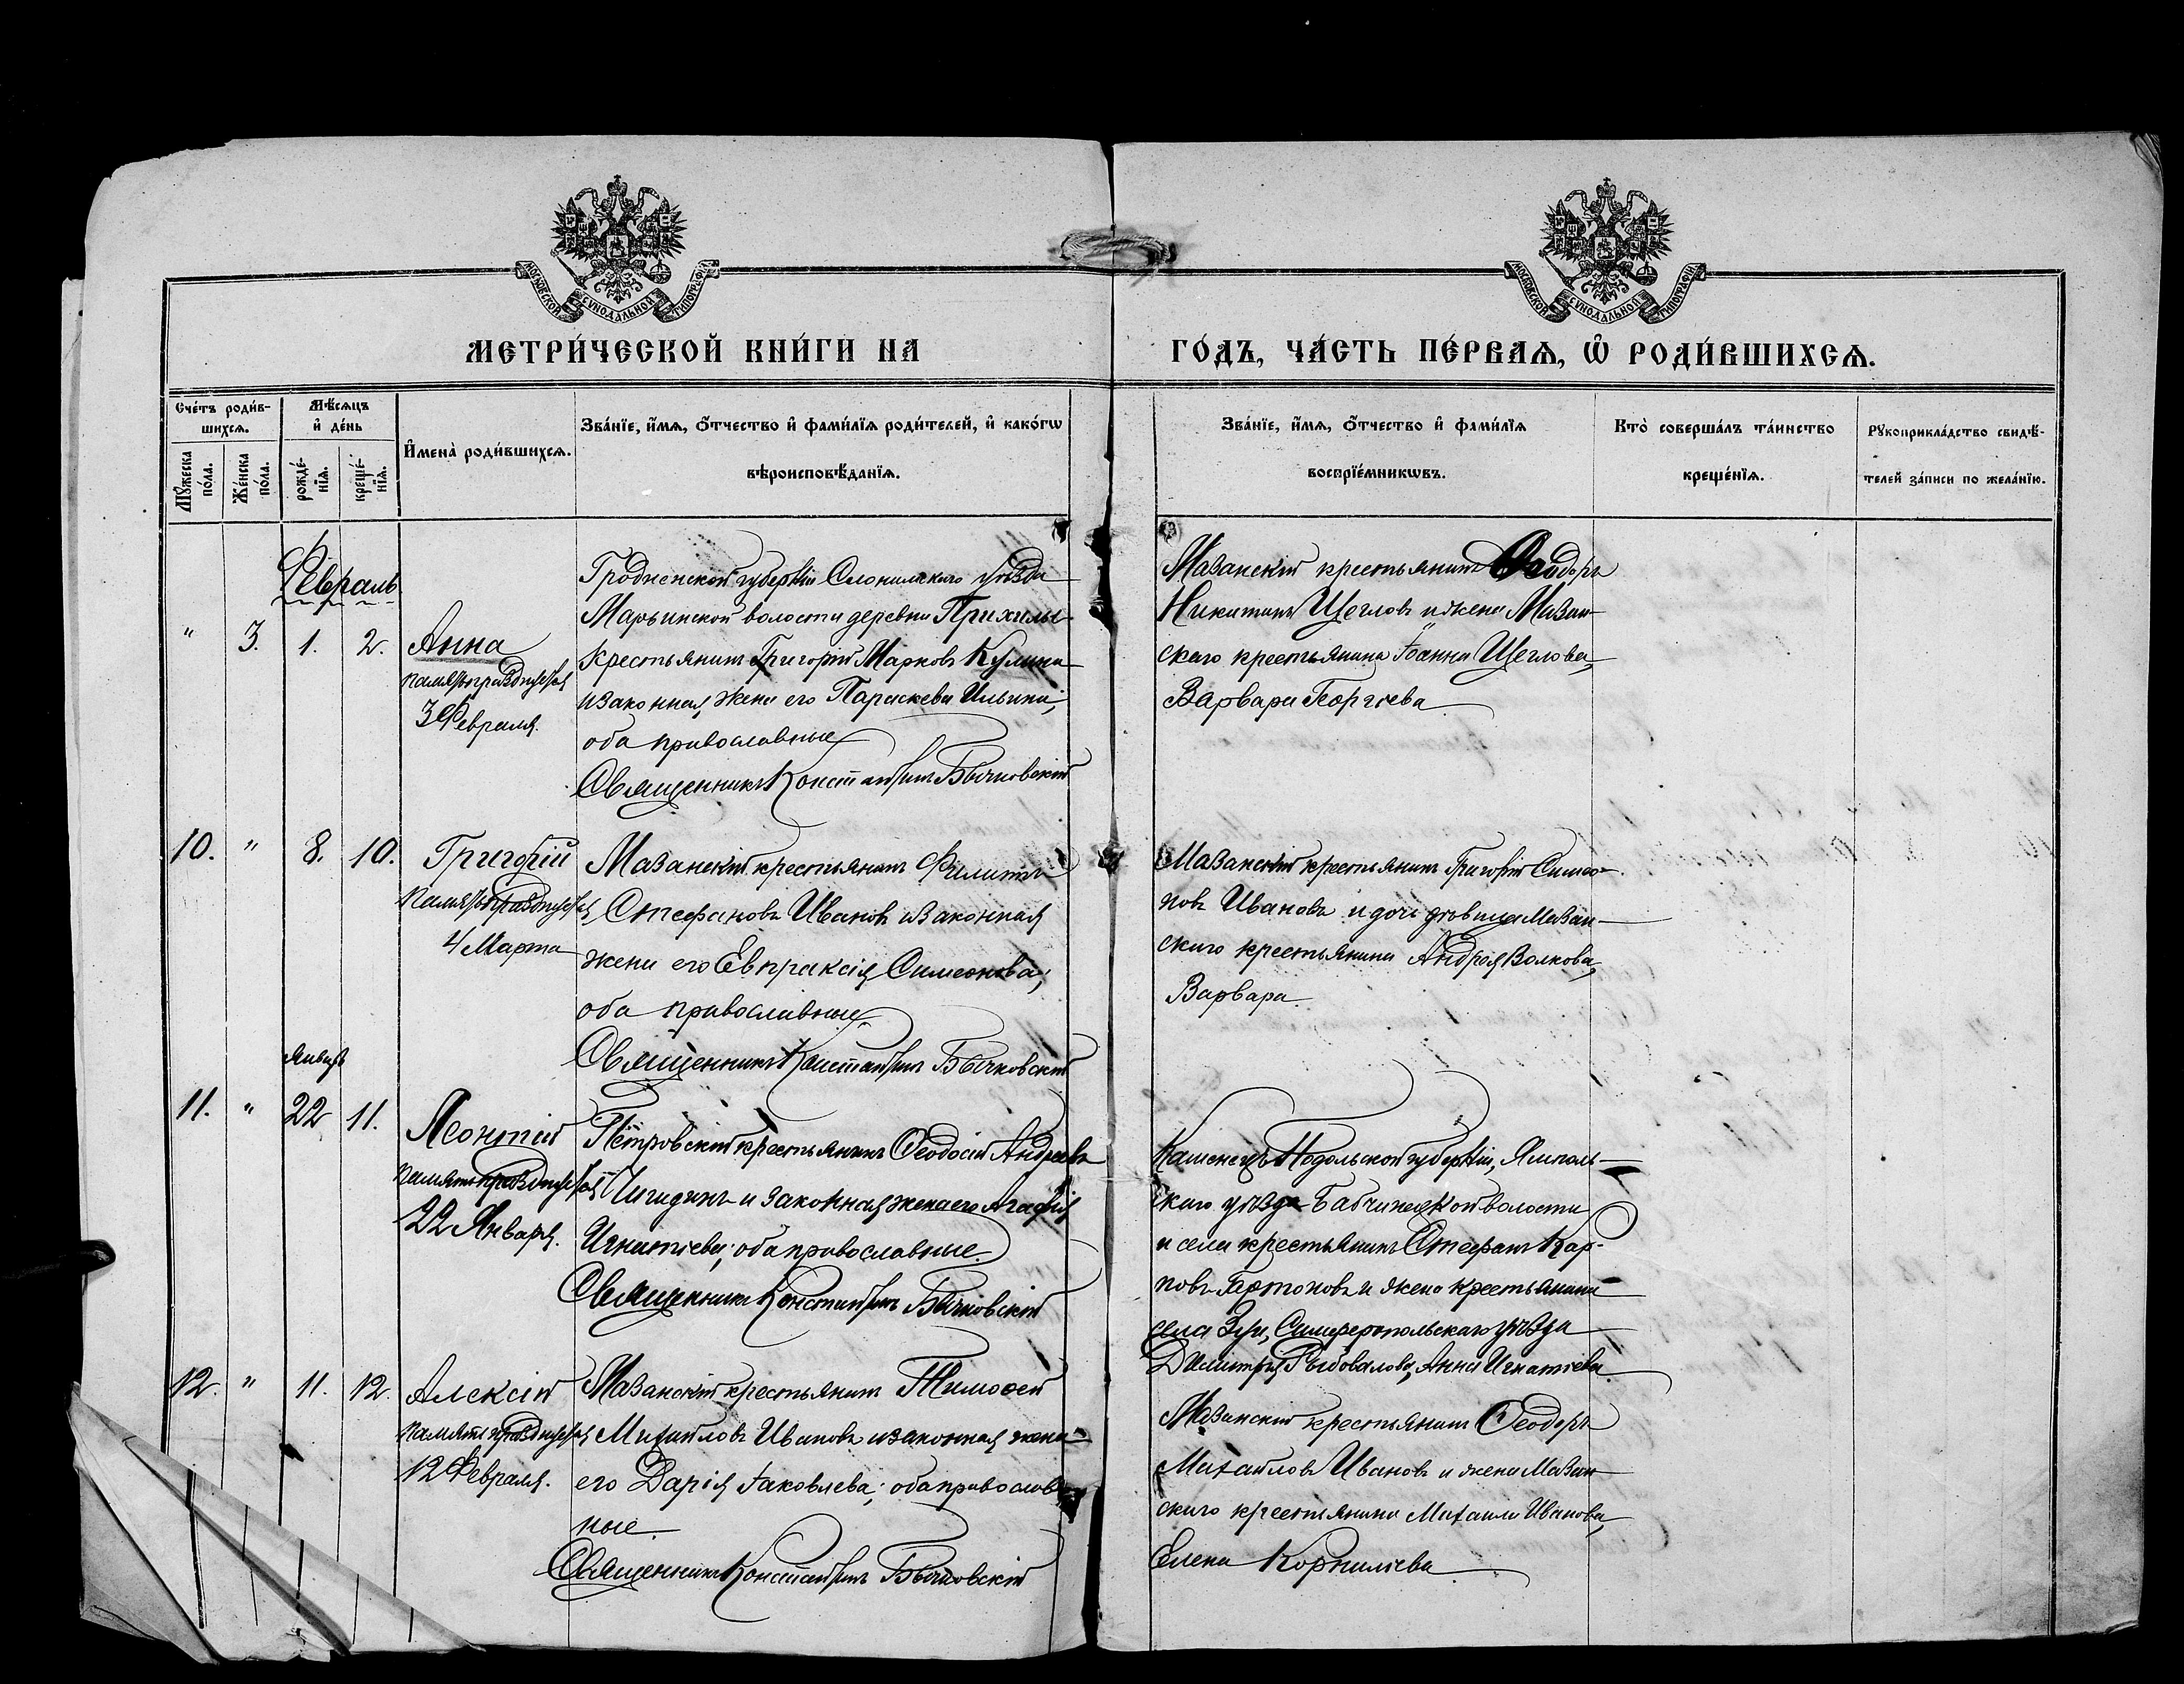 МОСКОВСКОЙ СѴНОДАЛЬНОЙ ТИПОГРАФІИ
МОСКОВСКОЙ СѴНОДАЛЬНОЙ ТИПОГРАФІИ
МЕТРИ́ЧЕСКОЙ КНИ́ГИ НА
ГО́ДЪ, ЧА́СТЬ ПЕ́РВАѦ, Ѡ҆ РОДИ́ВШИХСѦ.
Сче́тъ роди́в-
шихсѧ.
Мѣ́сѧцъ
и҆ де́нь
Мꙋ́жеска по́ла.
Же́нска по́ла.
рожде́-нїѧ.
креще́-нїѧ.
И҆мена̀ роди́вшихсѧ.
Зва́нїе, и҆́мѧ, ѻ҆́тчество и҆ фами́лїѧ роди́телей, и҆ како́гѡ
вѣроисповѣ́данїѧ.
Зва́нїе, и҆́мѧ, ѻ҆́тчество и҆ фами́лїѧ
воспрїе́мникѡвъ.
Кто̀ соверша́лъ та́инство
креще́нїѧ.
Рꙋкоприкла́дство свидѣ́-
телей за́писи по жела́нїю.
Февраль
" 3. 1. 2. Анна
память празднуется
3 Февраля.
Гродненской губерніи Слонимскаго уѣзда
Марьинской волости деревни Прихилы
крестьянинъ Григорій Марковъ Кулина
и законная жена его Параскева Ильина;
оба православные
Священникъ Константинъ Бычковскій
Мазанскій крестьянинъ Ѳеодоръ
Никитинъ Щегловъ и жена Мазан-
скаго крестьянина Іоанна Щеглова,
Варвара Георгіева
10. " 8. 10. Григорій
память празднуется
4 Марта
Мазанскій крестьянинъ Филиппъ
Стефановъ Ивановъ и законная
жена его Евпраксія Симеонова;
оба православные.
Священникъ Константинъ Бычковскій
Мазанскій крестьянинъ Григорій Симео-
новъ Ивановъ и дочь дѣвица Мазан-
скаго крестьянина Андрея Волкова,
Варвара.
Январь
11. " 22 11. Леонтій
память празднуется
22 Января.
Петровскій крестьянинъ Ѳеодосій Андреевъ
Чигидинъ и законная жена его Агафія
Игнатіева; оба православные.
Священникъ Константинъ Бычковскій
Каменецъ Подольской губерніи, Ямполь-
скаго уѣзда Бабчинецкой волости
и села крестьянинъ Стефанъ Кар-
повъ и жена крестьянина
села Зуи, Симферопольскаго уѣзда
Димитрія Рыбовалова, Анна Игнатіева.
12. " 11. 12. Алексій
память празднуется
12 Февраля.
Мазанскій крестьянинъ Тимоѳей
Михайловъ Ивановъ и законная жена
его Дарія Іаковлева; оба православ
ные.
Священникъ Константинъ Бычковскій
Мазанскій крестьянинъ Ѳеодоръ
Михайловъ Ивановъ и жена Мазан
скаго крестьянина Михаила Иванова,
Елена Корнилiева